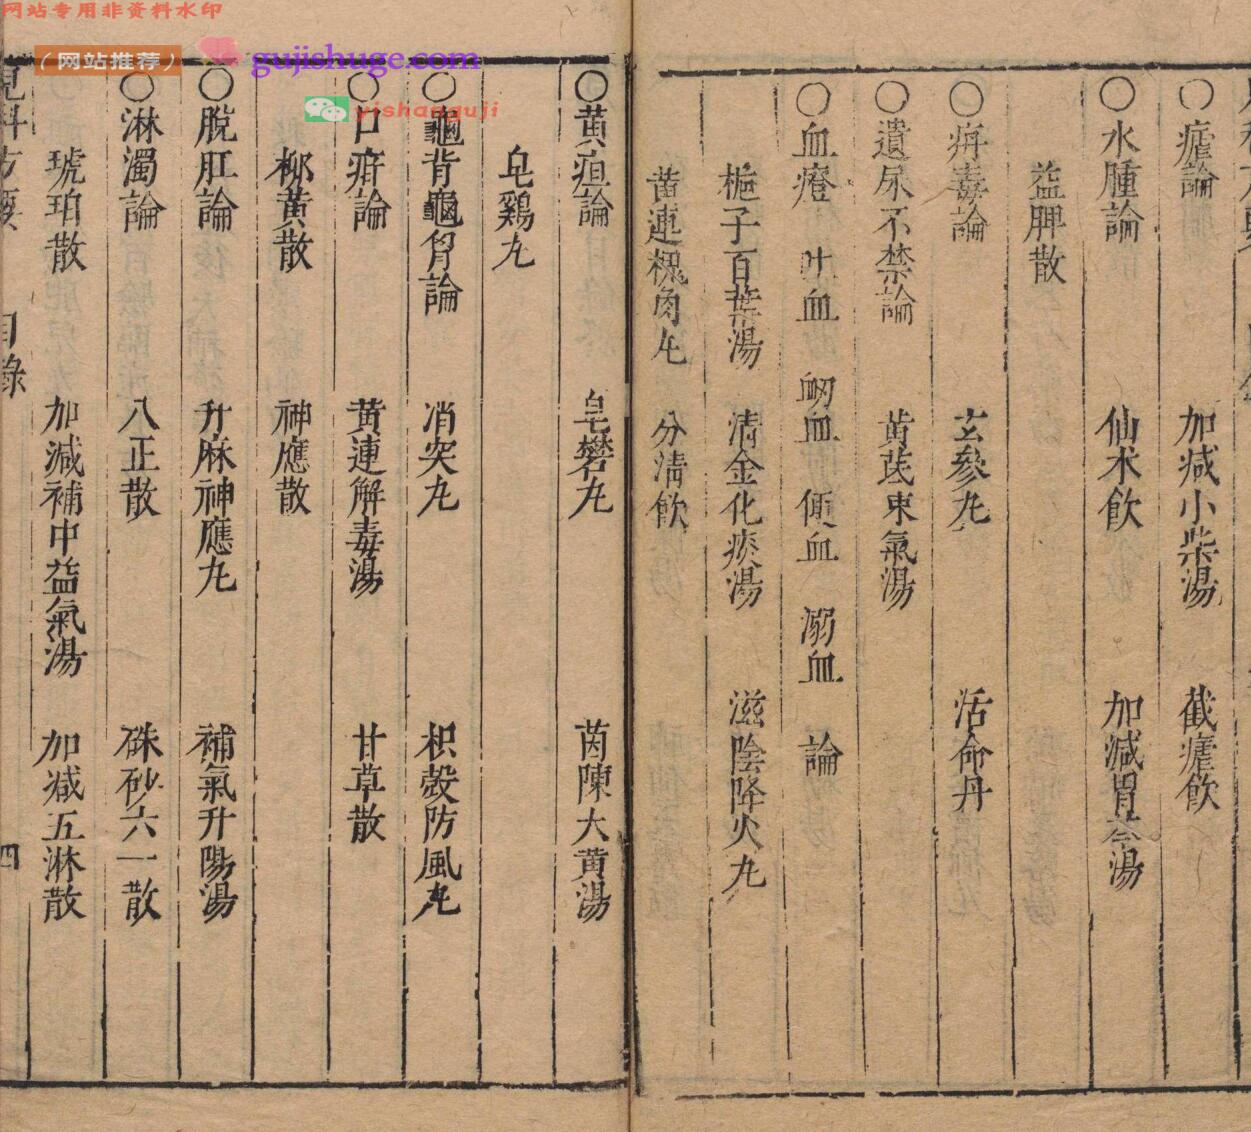 网站专用非资料水印
（网站推荐）
gujishuge.com
yishanguji
○瘧論 加減小柴湯 截瘧飲
○水腫論 仙术飲 加減胃苓湯
益脾散
○痳毒論 玄參丸 活命丹
○遺尿不禁論 黃芪束氣湯
○血證 吐血 衂血 便血 溺血 論
梔子百葉湯 清金化痰湯 滋陰降火丸
黃連槐角丸 分淸飲
○黃疸論 皂礬丸 茵陳大黃湯
皂鷄丸
○龜背龜胷論 消突丸 枳殼防風丸
○口疳論 黃連解毒湯 甘草散
柳黃散 神應散
○脫肛論 升麻神應丸 補氣升陽湯
○淋濁論 八正散 硃砂六一散
琥珀散 加減補中益氣湯 加减五淋散
兒科方要 目錄 四